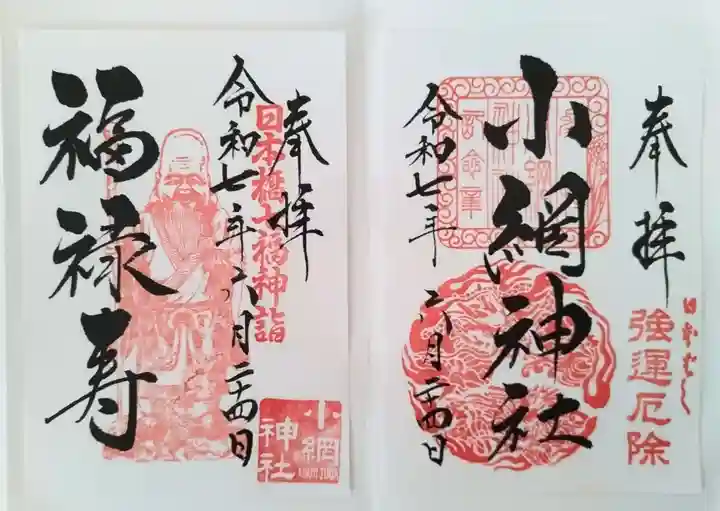 奉拝
日本橋七福神詣
令和七年六月二十四日
福禄寿
小網
神社
奉拝
日本ばし
強運厄除
小網神社
令和七年六月二十四日